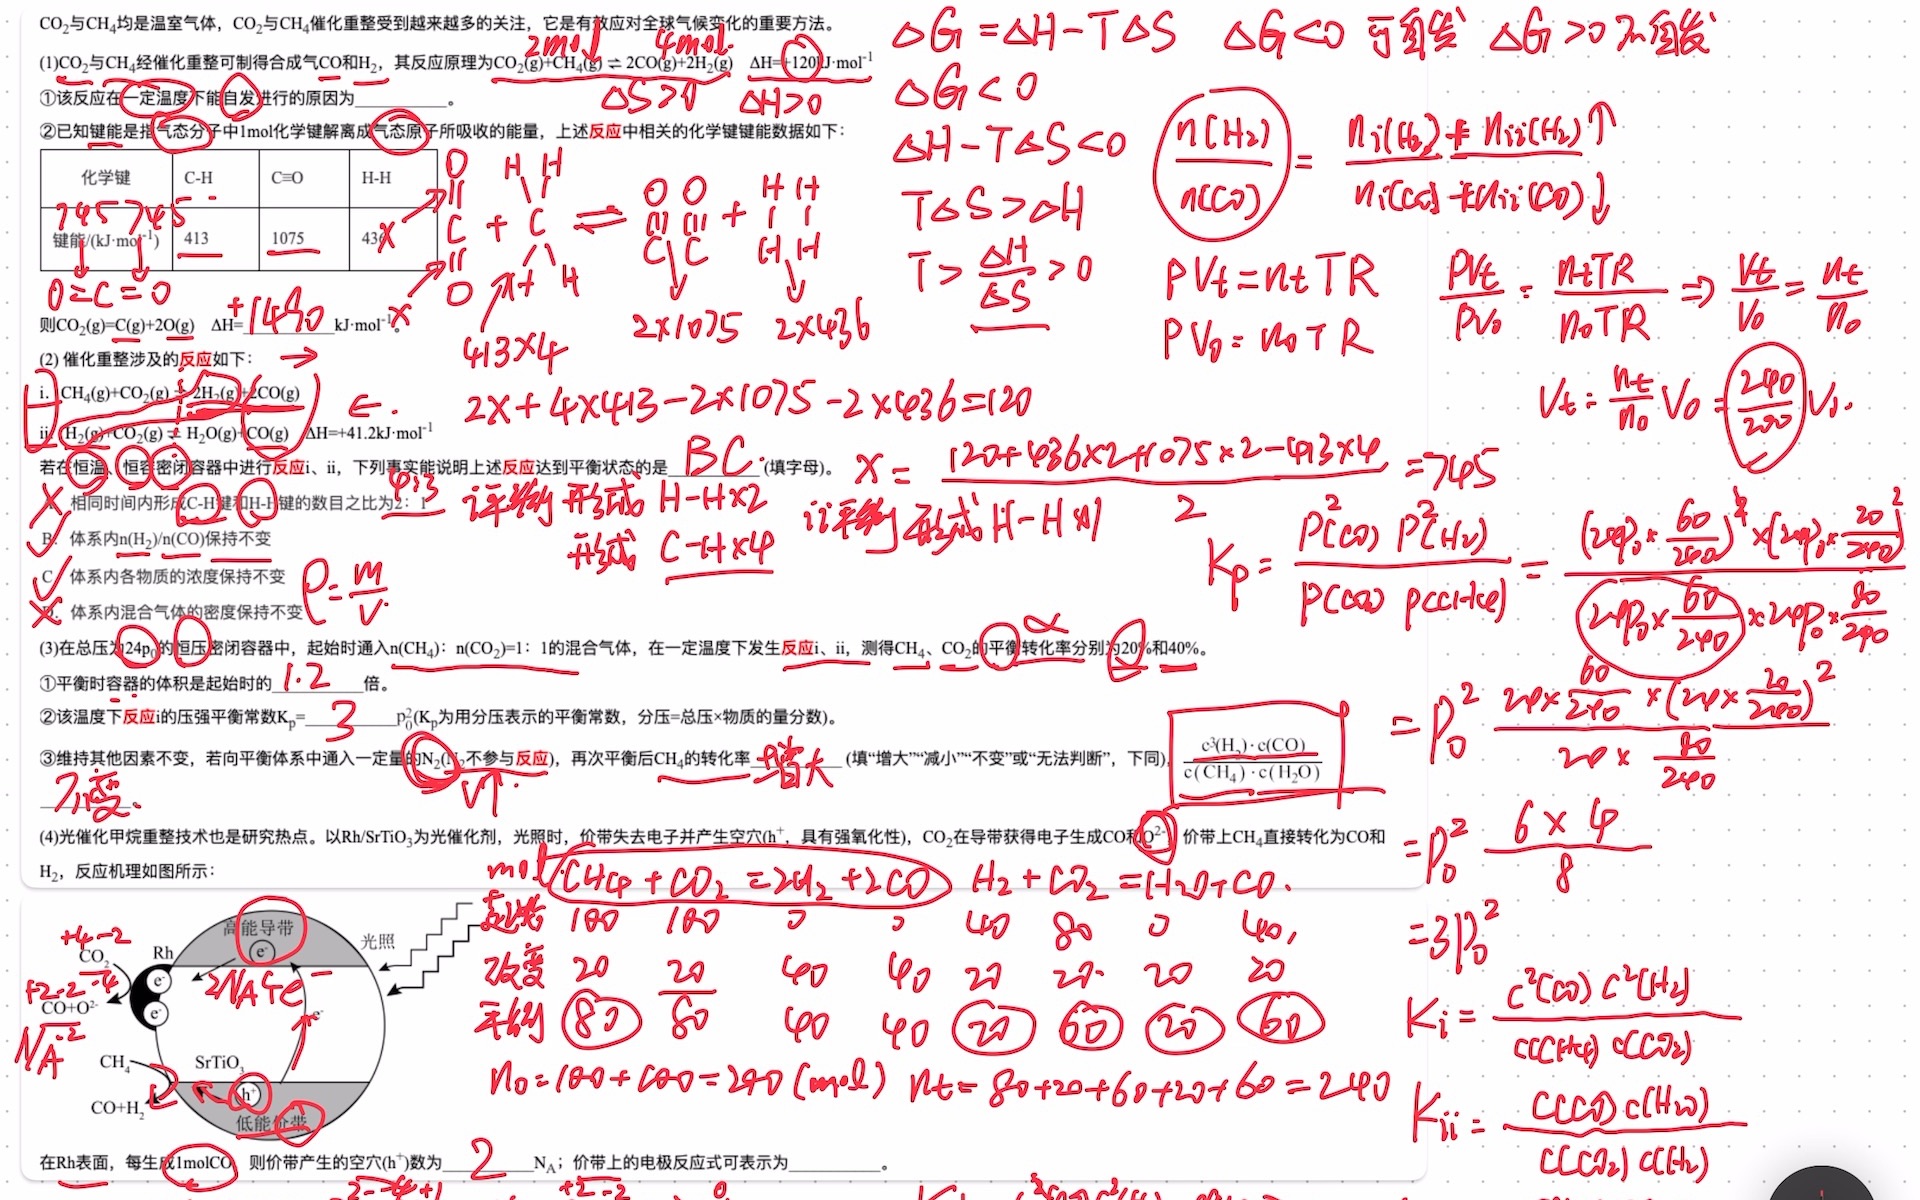 CO₂与CH₄均是温室气体，CO₂与CH₄催化重整受到越来越多的关注，它是有效应对全球气候变化的重要方法。
2mol 4mol
(1)CO₂与CH₄经催化重整可制得合成气CO和H₂，其反应原理为CO₂(g)+CH₄(g)⇌2CO(g)+2H₂(g) ΔH=+120kJ·mol⁻¹
①该反应在一定温度下能自发进行的原因为________。
ΔS>0 ΔH>0
②已知键能是指气态分子中1mol化学键解离成气态原子所吸收的能量，上述反应中相关的化学键键能数据如下：
化学键 C-H C≡O H-H
745 745
键能/(kJ·mol⁻¹) 413 1075 436
O=C=O
则CO₂(g)=C(g)+2O(g) ΔH=+1490kJ·mol⁻¹。
413×4 2×1075 2×436
(2) 催化重整涉及的反应如下：
i. CH₄(g)+CO₂(g)⇌2H₂(g)+2CO(g)
ii. H₂(g)+CO₂(g)⇌H₂O(g)+CO(g) ΔH=+41.2kJ·mol⁻¹
2x+4×413-2×1075-2×436=120
x=(120+436×2+1075×2-413×4)/2=745
若在恒温、恒容密闭容器中进行反应i、ii，下列事实能说明上述反应达到平衡状态的是 BC.(填字母)。
A. 相同时间内形成C-H键和H-H键的数目之比为2：1
4:3
i平衡 形成 H-H×2
形成 C-H×4
ii平衡 形成 H-H×1
B. 体系内n(H₂)/n(CO)保持不变
C. 体系内各物质的浓度保持不变
D. 体系内混合气体的密度保持不变
ρ=m/V
(3)在总压为24p₀的恒压密闭容器中，起始时通入n(CH₄)：n(CO₂)=1：1的混合气体，在一定温度下发生反应i、ii，测得CH₄、CO₂的平衡转化率分别为20%和40%。
α
①平衡时容器的体积是起始时的 1.2 倍。
②该温度下反应i的压强平衡常数Kₚ= 3 p₀²(Kₚ为用分压表示的平衡常数，分压=总压×物质的量分数)。
③维持其他因素不变，若向平衡体系中通入一定量的N₂(N₂不参与反应)，再次平衡后CH₄的转化率 增大 (填“增大”“减小”“不变”或“无法判断”，下同)，c³(H₂)·c(CO)/c(CH₄)·c(H₂O)
不变.
V↑
(4)光催化甲烷重整技术也是研究热点。以Rh/SrTiO₃为光催化剂，光照时，价带失去电子并产生空穴(h⁺，具有强氧化性)，CO₂在导带获得电子生成CO和O²⁻，价带上CH₄直接转化为CO和
H₂，反应机理如图所示：
高能导带
e⁻
光照
+4 -2
CO₂
Rh
e⁻
e⁻
+2 -2
CO+O²⁻
e⁻
CH₄
SrTiO₃
CO+H₂
h⁺
低能价带
在Rh表面，每生成1molCO，则价带产生的空穴(h⁺)数为 2 N_A；价带上的电极反应式可表示为________。
mol CH₄+CO₂=2H₂+2CO H₂+CO₂=H₂O+CO.
起始 100 100 0 0 40 80 0 40
改变 20 20 40 40 20 20 20 20
平衡 80 80 40 40 20 60 20 60
n₀=100+100=200(mol) nt=80+20+60+20+60=240
ΔG=ΔH-TΔS ΔG<0 可自发 ΔG>0不自发
ΔG<0
ΔH-TΔS<0
TΔS>ΔH
T>ΔH/ΔS>0
n(H₂)/n(CO)=(nᵢ(H₂)+nᵢᵢ(H₂)↑)/(nᵢ(CO)+nᵢᵢ(CO)↓)
PVt=ntTR
PV₀=n₀TR
PVt/PV₀=ntTR/n₀TR⇒Vt/V₀=nt/n₀
Vt=nt/n₀ V₀=240/200 V₀.
Kp=P²(CO)P²(H₂)/P(CO₂)P(CH₄)=(24p₀×60/240)²×(24p₀×20/240)²/(24p₀×60/240×24p₀×80/240)
=p₀² 24×60/240×(24×20/240)²/(24×80/240)
=p₀² 6×4/8
=3p₀²
Kᵢ=c²(CO)c²(H₂)/c(CH₄)c(CO₂)
Kᵢᵢ=c(CO)c(H₂O)/c(CO₂)c(H₂)